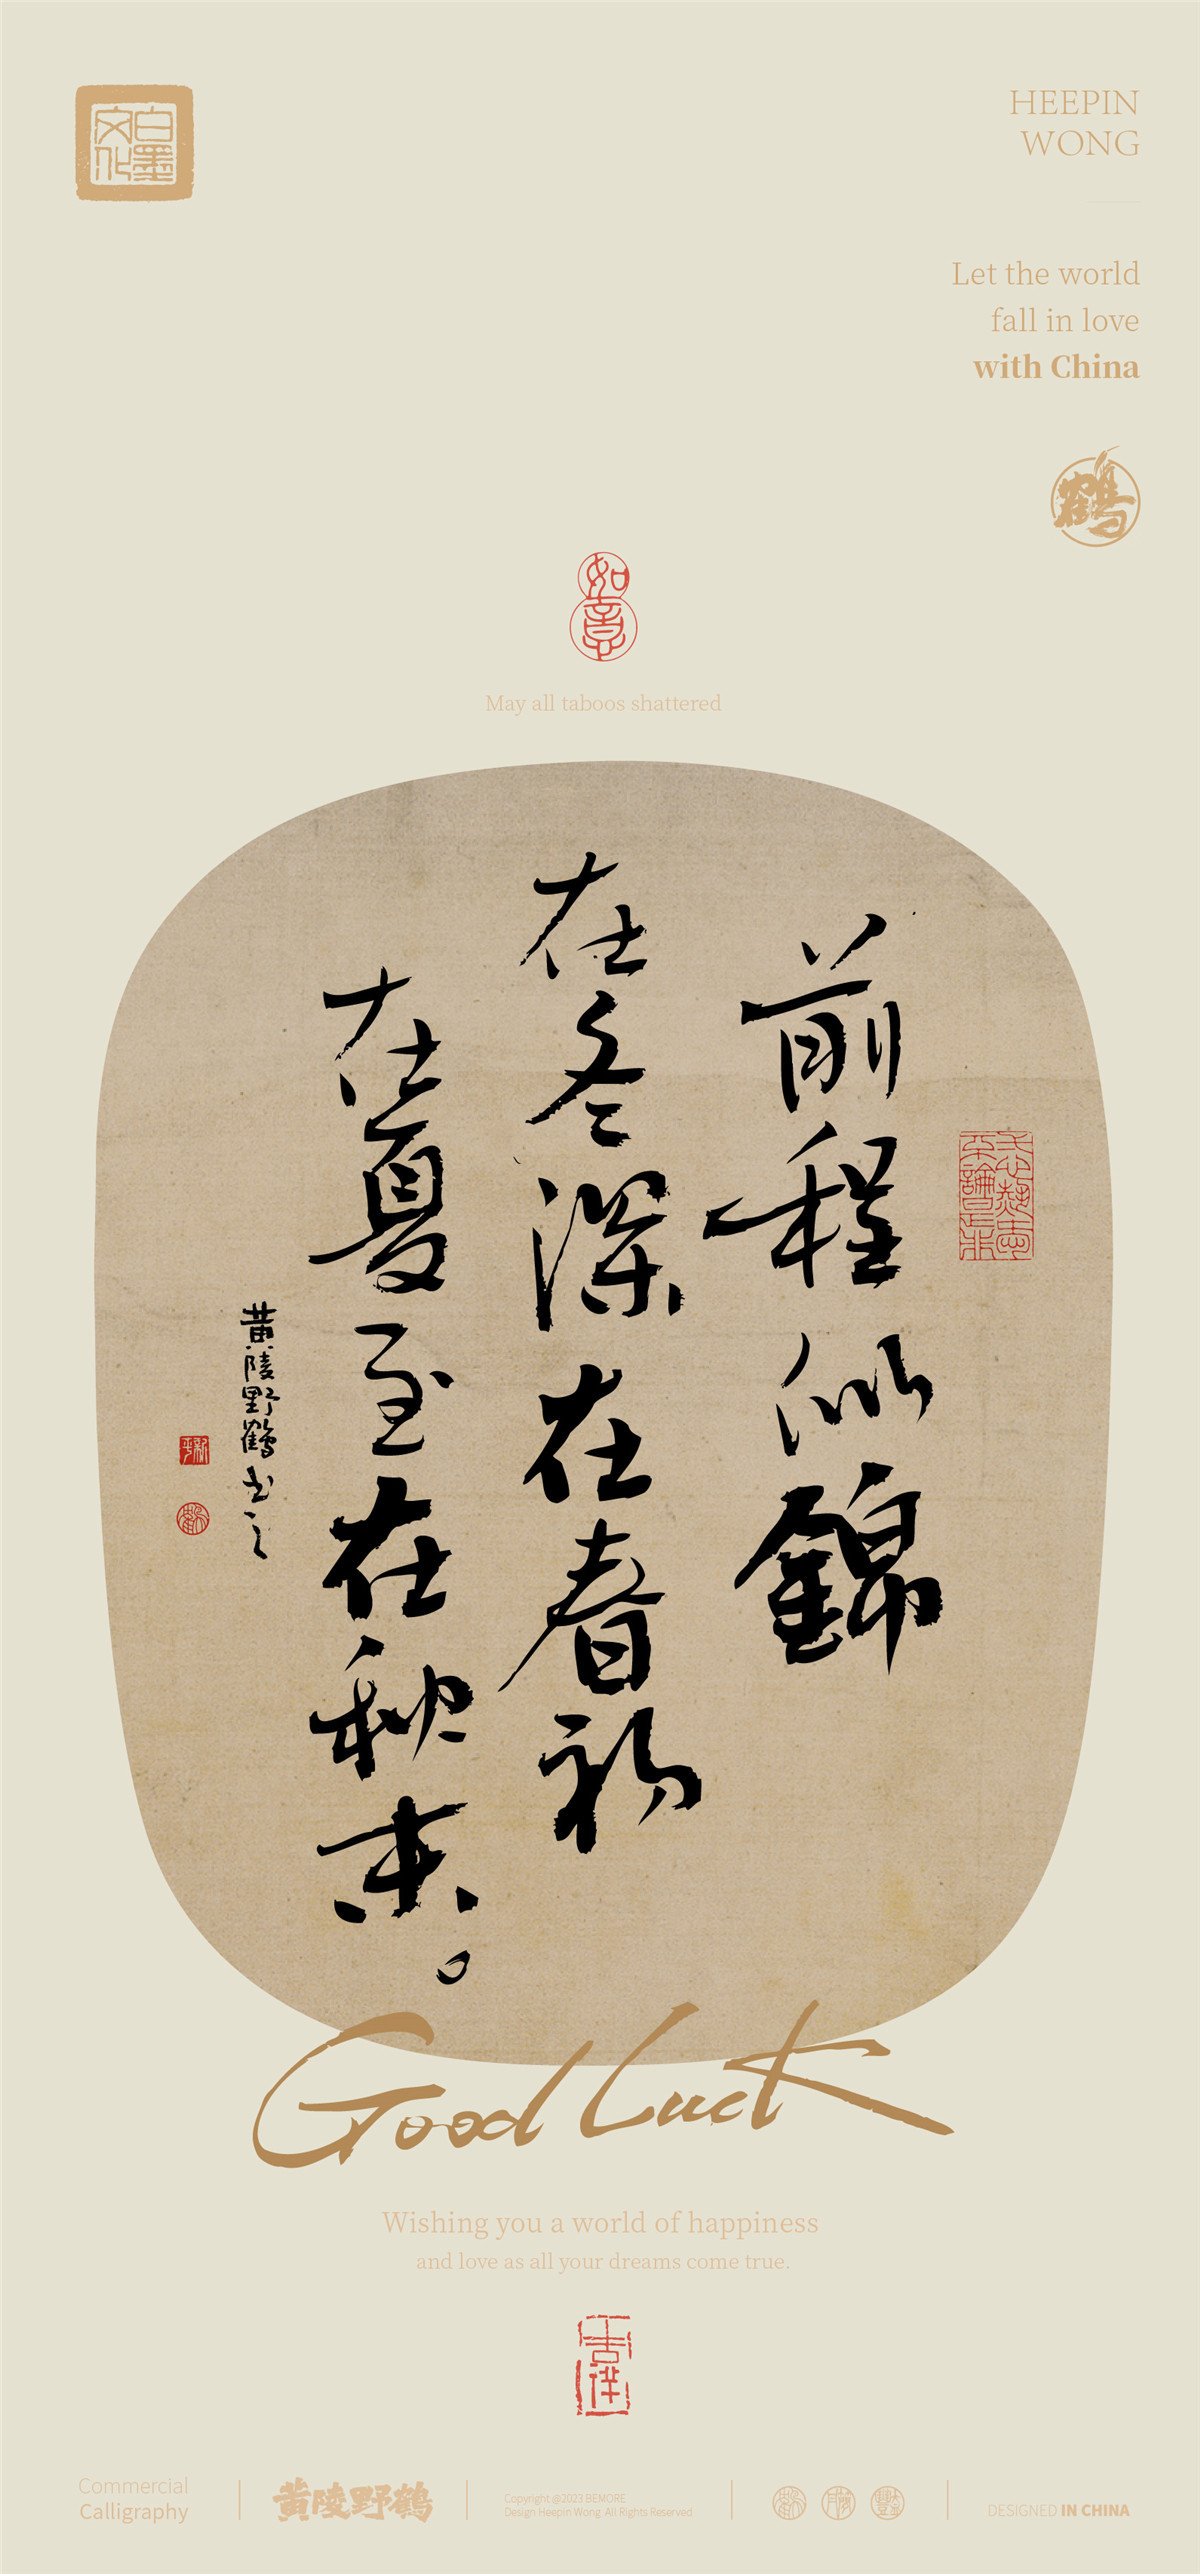 白墨
文化
HEEPIN
WONG
Let the world
fall in love
with China
鹤
如意
May all taboos shattered
前程似錦
在冬深在春初
在夏至在秋末。
黄陵野鹤书之
Good Luck
Wishing you a world of happiness
and love as all your dreams come true.
吉祥
Commercial
Calligraphy
黄陵野鹤
Copyright @2023 BEMORE
Design Heepin Wong. All Rights Reserved
DESIGNED IN CHINA